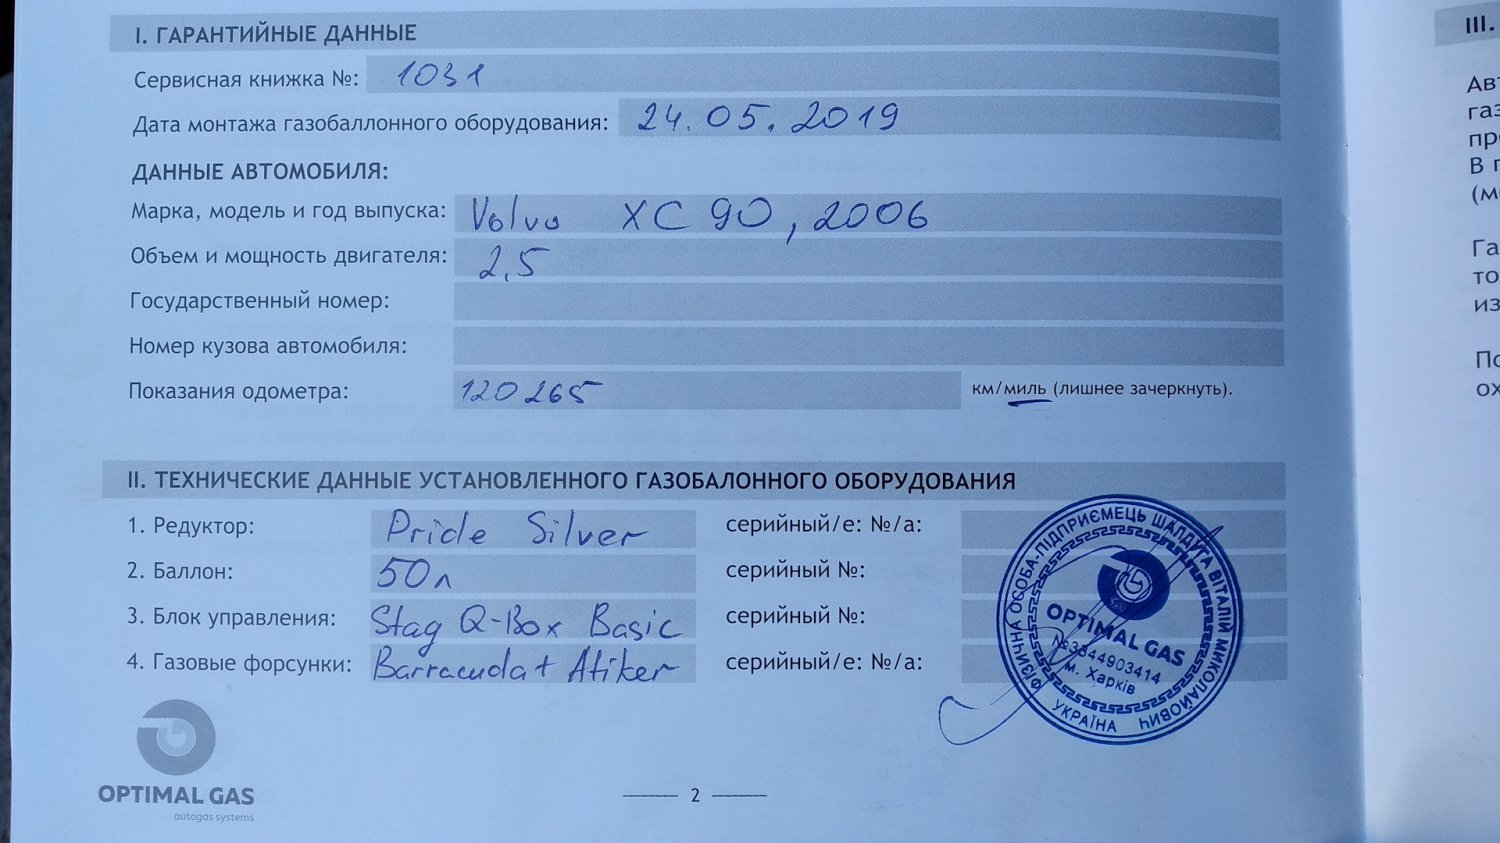 I. ГАРАНТИЙНЫЕ ДАННЫЕ
Сервисная книжка №: 1031
Дата монтажа газобаллонного оборудования: 24.05.2019
ДАННЫЕ АВТОМОБИЛЯ:
Марка, модель и год выпуска: Volvo XC 90, 2006
Объем и мощность двигателя: 2,5
Государственный номер:
Номер кузова автомобиля:
Показания одометра: 120265 км/миль (лишнее зачеркнуть).
II. ТЕХНИЧЕСКИЕ ДАННЫЕ УСТАНОВЛЕННОГО ГАЗОБАЛОННОГО ОБОРУДОВАНИЯ
1. Редуктор: Pride Silver серийный/е: №/а:
2. Баллон: 50л серийный №:
3. Блок управления: Stag Q-Box Basic серийный №:
4. Газовые форсунки: Barracuda + Atiker серийный/е: №/а:
ФІЗИЧНА ОСОБА-ПІДПРИЄМЕЦЬ ШАПДУГА ВІТАЛІЙ МИКОЛАЙОВИЧ
OPTIMAL GAS
№3844903414
м. Харків
УКРАЇНА
OPTIMAL GAS
autogas systems
2
III.
газ
В
Га
то
из
По
ох